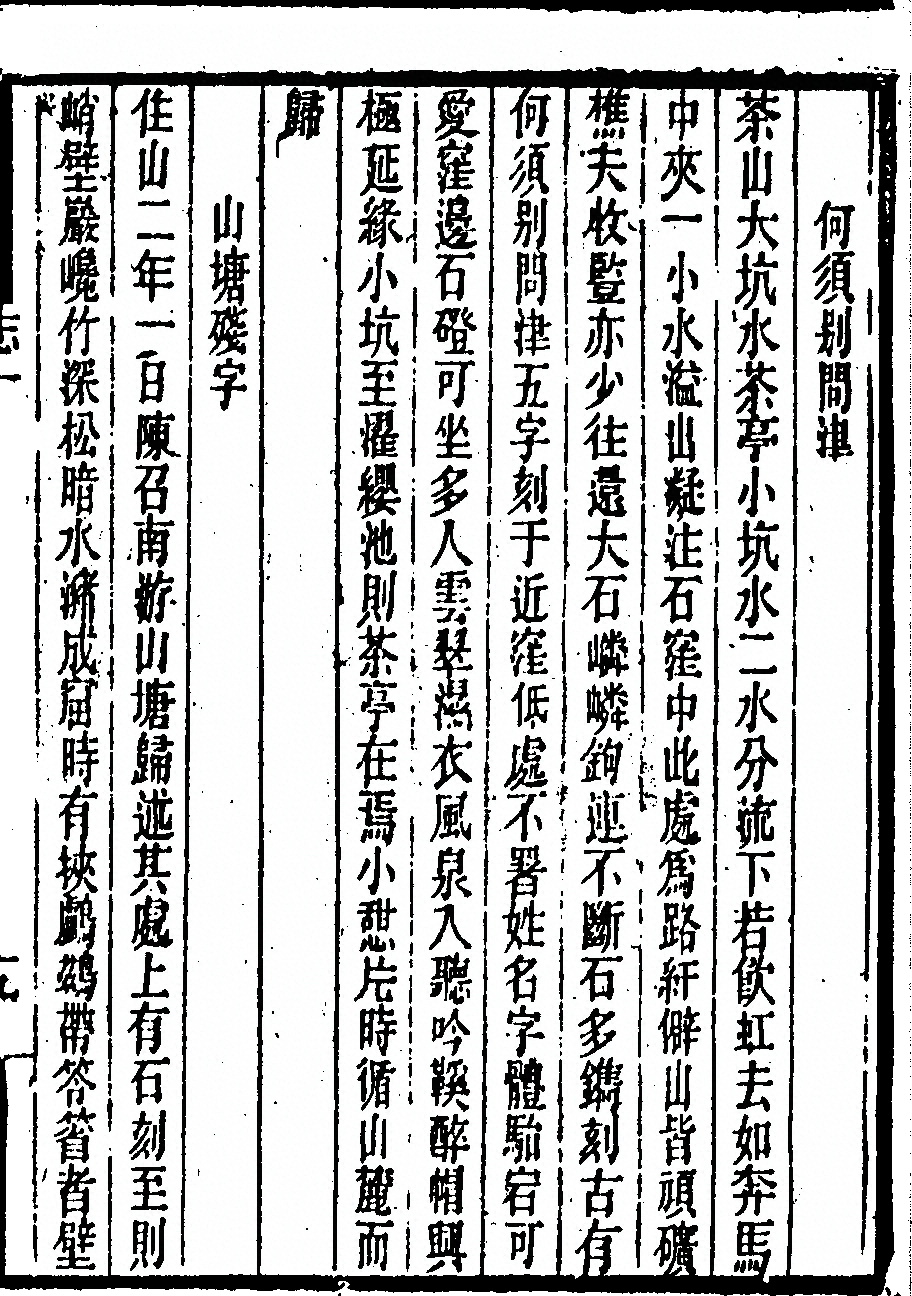 何須別問津
茶山大坑水茶亭小坑水二水分流下若飲虹去如奔馬
中夾一小水溢出凝注石窪中此處爲路紆僻山皆頑礦
樵夫收豎亦少往還大石嶙嶙鉤連不斷石多鐫刻古有
何須別問津五字刻于近窪低處不署姓名字體駘宕可
愛窪邊石磴可坐多人雲翠濕衣風泉入聽吟鞵醉帽興
極延緣小坑至濯纓池則茶亭在焉小憇片時循山麓而
歸
山塘殘字
住山二年一日陳召南游山塘歸述其處上有石刻至則
峭壁巖巉竹深松暗水瀦成 時有挾鸕鷀帶笭箵者壁
志一
九